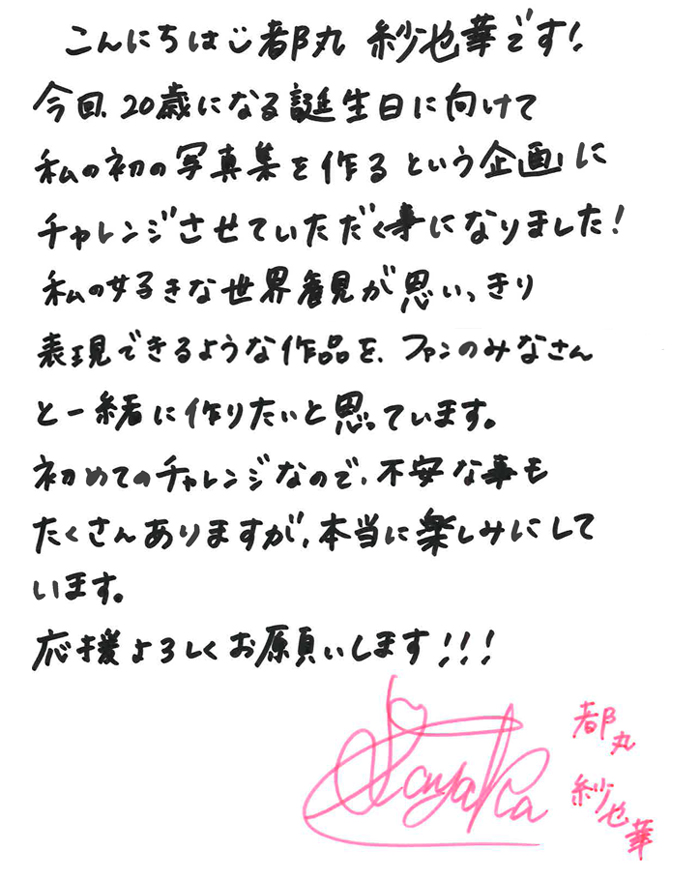 こんにちは☺都丸 紗也華です!
今回、20歳になる誕生日に向けて
私の初の写真集を作るという企画に
チャレンジさせていただく事になりました!
私の好きな世界観が思いっきり
表現できるような作品を、ファンのみなさん
と一緒に作りたいと思っています。
初めてのチャレンジなので、不安な事も
たくさんありますが、本当に楽しみにして
います。
応援よろしくお願いします!!!
Sayaka
都丸
紗也華